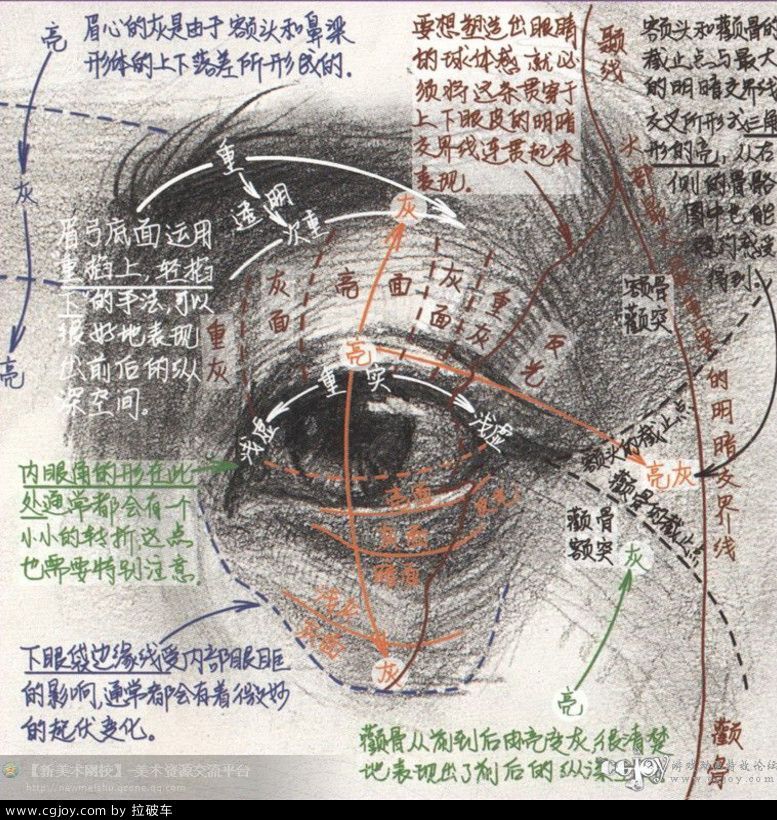 亮
灰
亮
眉心的灰是由于额头和鼻梁
形体的上下落差所形成的.
要想塑造出眼睛
的球体感就必
须将这条贯穿于
上下眼皮的明暗
交界线连贯起来
表现.
颞线
额头和颧骨的
截止点与最大
的明暗交界线
交叉所形成三角
形的亮,从右
侧的骨骼
图中也能
得到.
重
透明
次重
灰
眉弓底面运用
重掐上,轻掐
下的手法,可以
很好地表现
出前后的纵
深空间。
重灰
灰面
亮面
灰面
重灰
反光
额骨
颧突
的明暗交界线
亮
重实
浅虚
浅虚
额头的截止点
亮灰
颧骨的截止点
内眼角的形在此
处通常都会有一个
小小的转折这点
也需要特别注意.
颧骨
额突
灰
亮
灰
下眼袋边缘线受内部眼眶
的影响,通常都会有着微妙
的起伏变化。
颧骨从前到后由亮变灰很清楚
地表现出了前后的纵深
颧骨
【新美术网校】-美术资源交流平台
http://newmeishu.qzone.qq.com/
cgjoy
游戏动画特效论坛
www.cgjoy.com
www.cgjoy.com by 拉破车